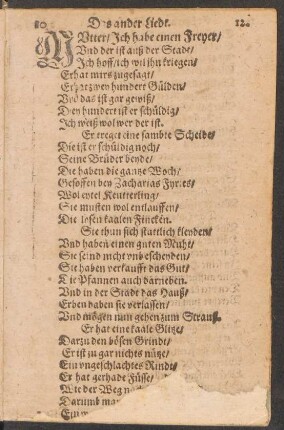 80 Das ander Liedt. 12.
MUtter/ Ich habe einen Freyer/
Vnd der ist auß der Stadt/
Ich hoff/ ich wil jhn kriegen/
Er hat mirs zugesagt/
Er hat zwey hundert Gülden/
Vnd das ist gar gewiß/
Drey hundert ist er schüldig/
Ich weiß wol wer der ist.
Er treget eine sambte Scheide/
Die ist er schüldig noch/
Seine Brüder beyde/
Die haben die gantze Woch/
Gesoffen bey Zacharias
Wol eytel Reutterling/
Sie musten wol entlauffen/
Die losen kaalen Fincken.
Sie thun sich stattlich kleyden/
Vnd haben einen guten Muht/
Sie seind nicht vnbescheyden/
Sie haben verkaufft das Gut/
Die Pfannen auch darneben.
Vnd in der Stadt das Hauß/
Erben haben sie verlassen/
Vnd mögen nun gehen zum Strauß.
Er hat eine kaale Glitze/
Darzu den bösen Grindt/
Er ist zu gar nichts nütze/
Ein vngeschlachtes Rindt/
Er hat gerhade Füsse/
Wie der Weg
Darumb
Ein